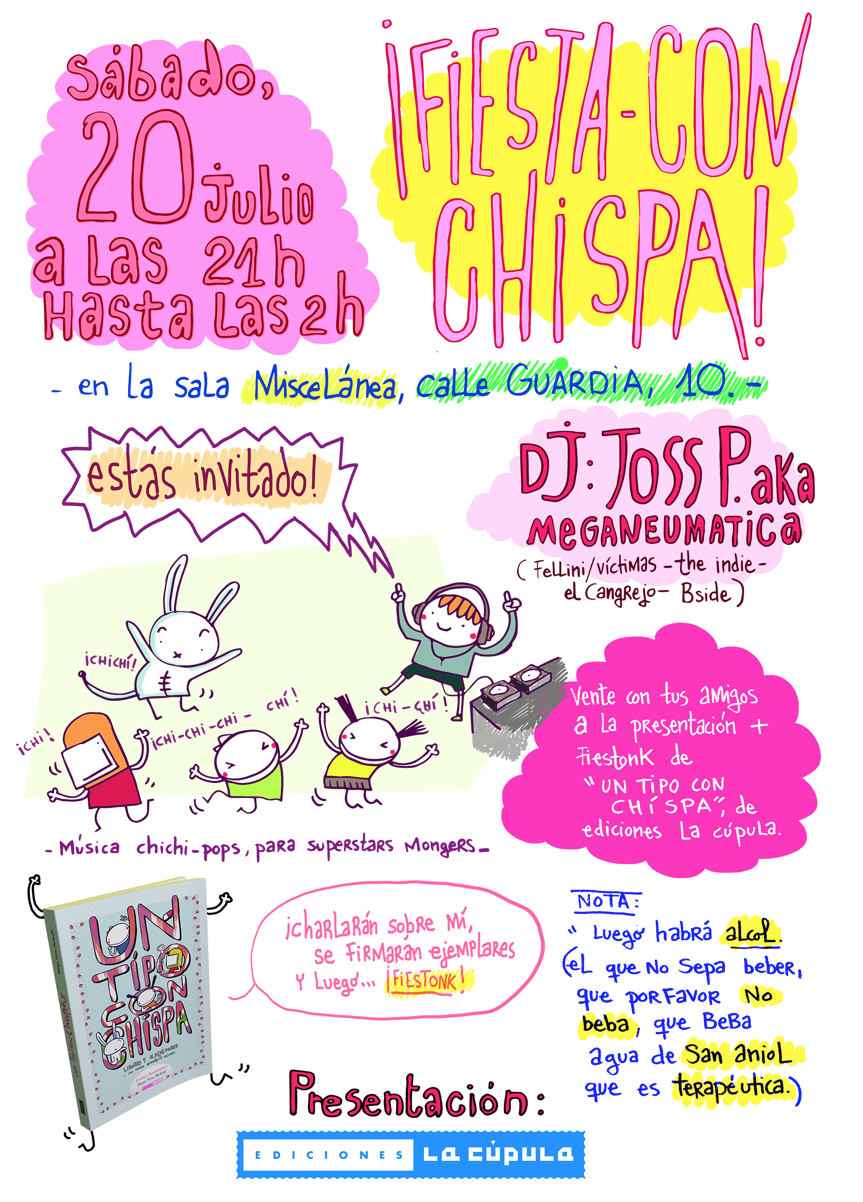 Sábado,
20 Julio
a las 21h
Hasta las 2h
¡FIESTA-CON
CHISPA!
- en la sala Miscelánea, calle GUARDIA, 10.-
estás invitado!
DJ: JOSS P. aka
MEGANEUMATICA
(Fellini/víctimas -the indie-
el Cangrejo- Bside)
¡CHICHÍ!
¡CHI!
¡CHI-CHI-CHI- CHÍ!
¡CHI-CHÍ!
Vente con tus amigos
a la presentación +
Fiestonk de
"UN TIPO CON
CHÍSPA", de
ediciones La cúpula.
- Música chichi-pops, para superstars Mongers_
UN
TÍPO
CON
CHÍSPA
¡charlarán sobre mí,
se firmarán ejemplares
y luego... ¡FIESTONK!
NOTA:
" Luego habrá alcol.
(el que No Sepa beber,
que porfavor No
beba, que BeBa
agua de San aniol
que es terapéutica.)
Presentación:
EDICIONES LA CÚPULA